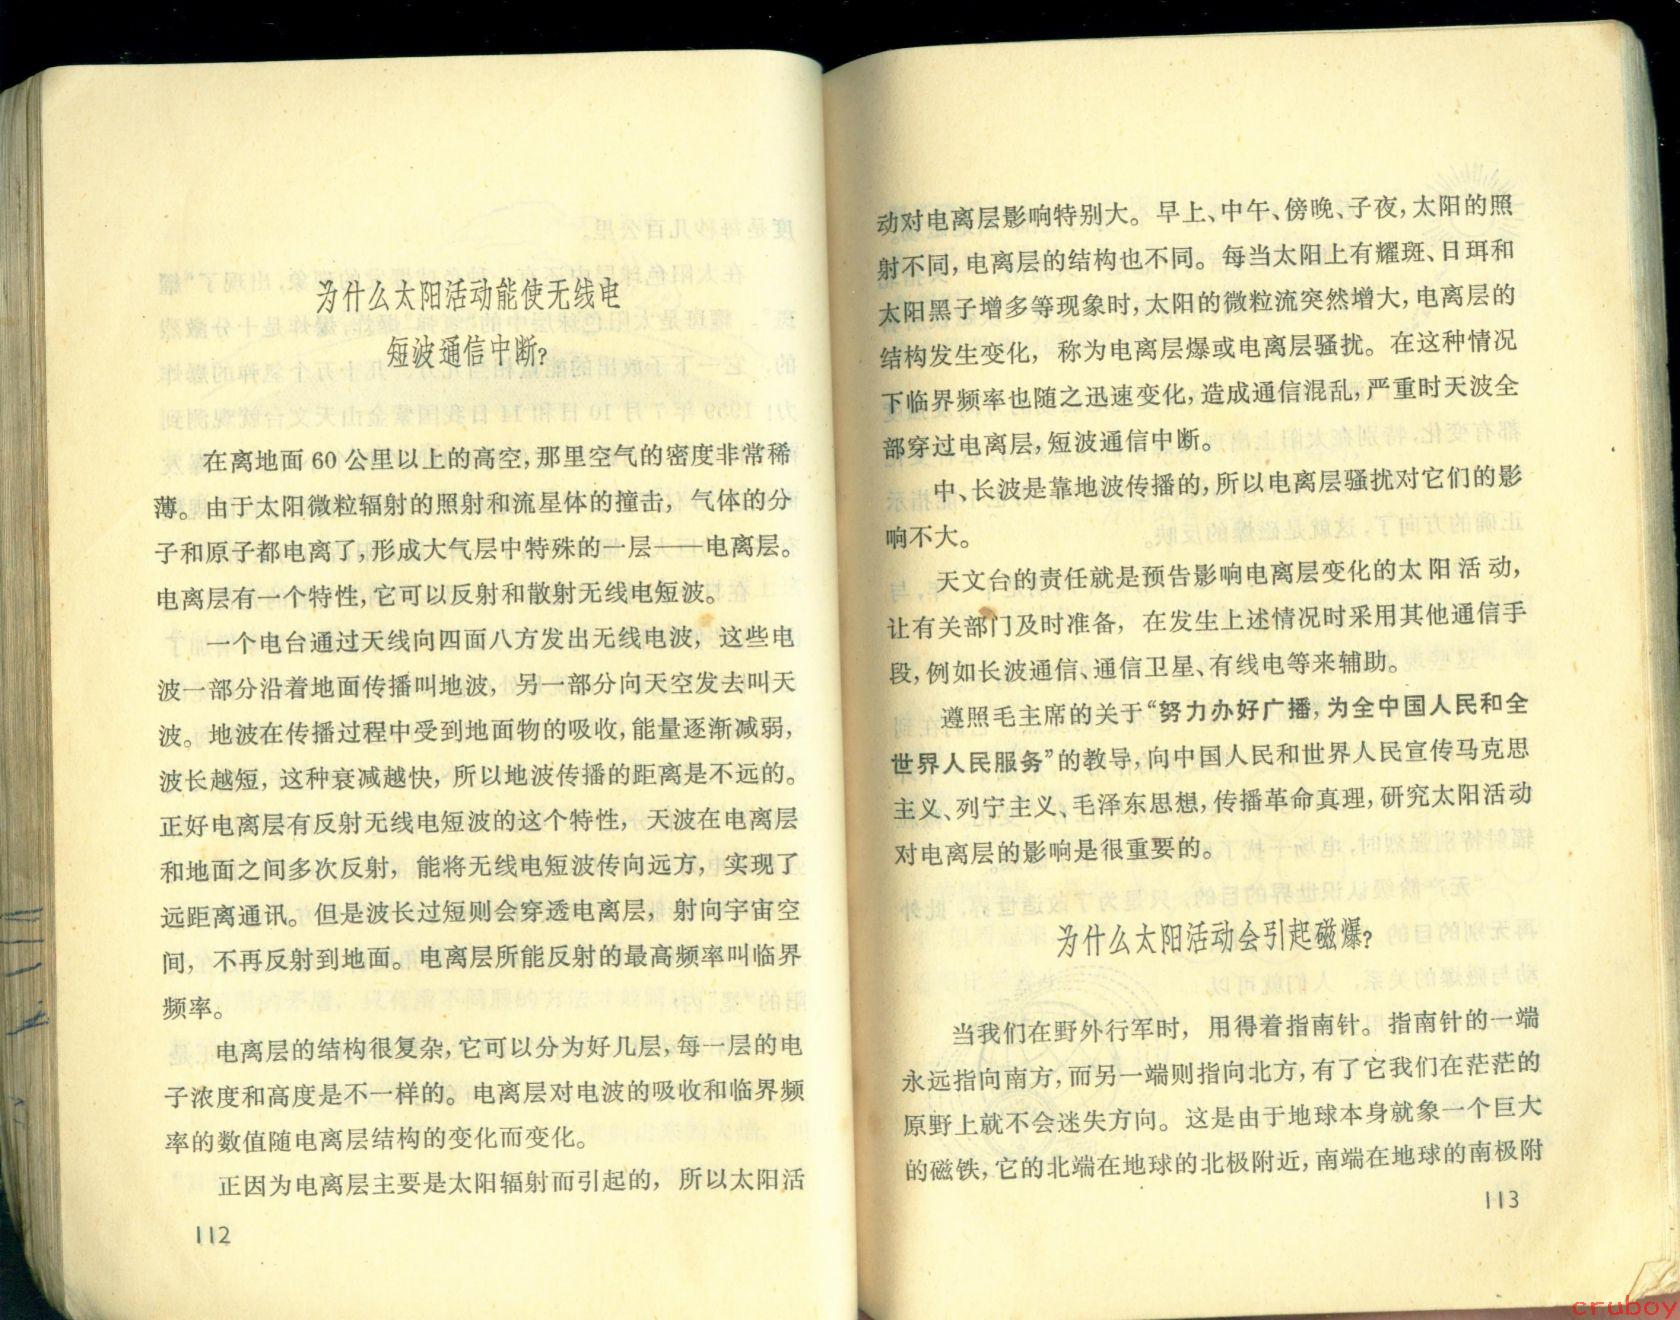 为什么太阳活动能使无线电
短波通信中断?
在离地面 60 公里以上的高空,那里空气的密度非常稀
薄。由于太阳微粒辐射的照射和流星体的撞击，气体的分
子和原子都电离了,形成大气层中特殊的一层——电离层。
电离层有一个特性,它可以反射和散射无线电短波。
一个电台通过天线向四面八方发出无线电波，这些电
波一部分沿着地面传播叫地波，另一部分向天空发去叫天
波。地波在传播过程中受到地面物的吸收,能量逐渐减弱,
波长越短，这种衰减越快，所以地波传播的距离是不远的。
正好电离层有反射无线电短波的这个特性，天波在电离层
和地面之间多次反射，能将无线电短波传向远方，实现了
远距离通讯。但是波长过短则会穿透电离层，射向宇宙空
间，不再反射到地面。电离层所能反射的最高频率叫临界
频率。
电离层的结构很复杂,它可以分为好几层,每一层的电
子浓度和高度是不一样的。电离层对电波的吸收和临界频
率的数值随电离层结构的变化而变化。
正因为电离层主要是太阳辐射而引起的，所以太阳活
112
动对电离层影响特别大。早上、中午、傍晚、子夜,太阳的照
射不同,电离层的结构也不同。每当太阳上有耀斑、日珥和
太阳黑子增多等现象时,太阳的微粒流突然增大,电离层的
结构发生变化，称为电离层爆或电离层骚扰。在这种情况
下临界频率也随之迅速变化,造成通信混乱,严重时天波全
部穿过电离层,短波通信中断。
中、长波是靠地波传播的,所以电离层骚扰对它们的影
响不大。
天文台的责任就是预告影响电离层变化的太阳活动,
让有关部门及时准备，在发生上述情况时采用其他通信手
段,例如长波通信、通信卫星、有线电等来辅助。
遵照毛主席的关于“努力办好广播,为全中国人民和全
世界人民服务”的教导,向中国人民和世界人民宣传马克思
主义、列宁主义、毛泽东思想,传播革命真理,研究太阳活动
对电离层的影响是很重要的。
为什么太阳活动会引起磁爆?
当我们在野外行军时，用得着指南针。指南针的一端
永远指向南方,而另一端则指向北方,有了它我们在茫茫的
原野上就不会迷失方向。这是由于地球本身就象一个巨大
的磁铁,它的北端在地球的北极附近,南端在地球的南极附
113
cruboy